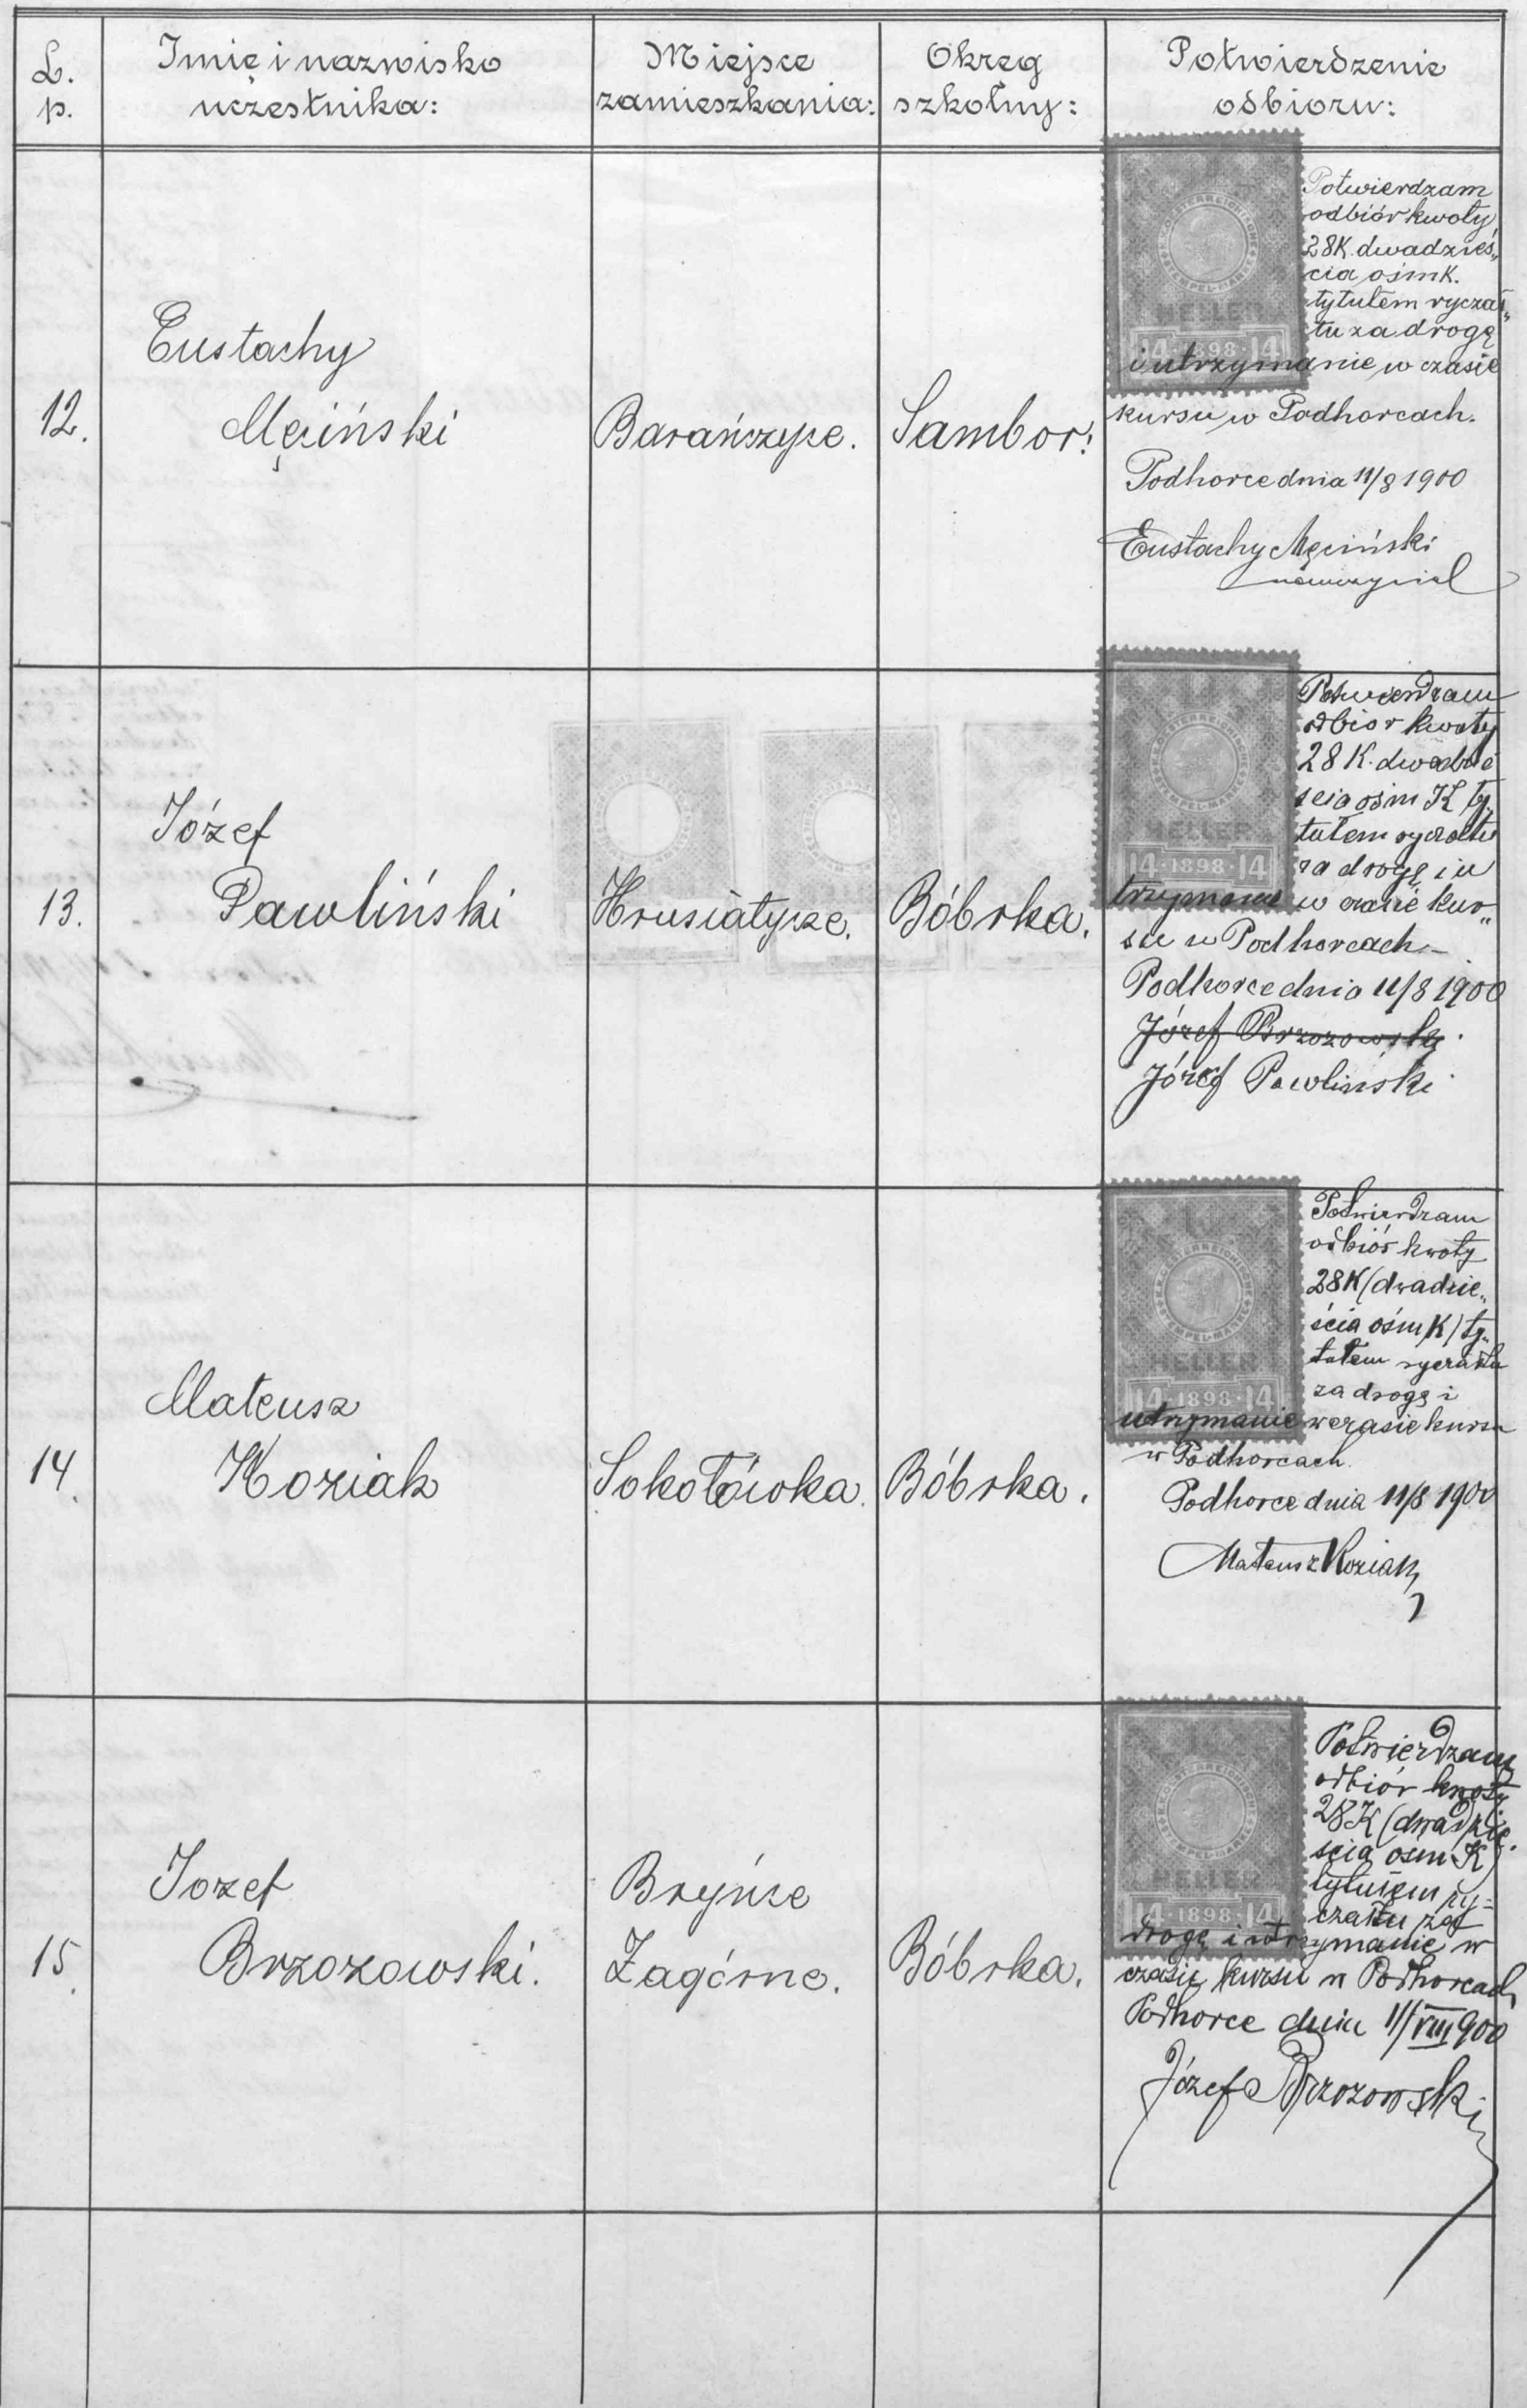 L. p.
Imię i nazwisko
uczestnika:
Miejsce
zamieszkania:
Okręg
szkolny:
Potwierdzenie
odbioru:
12.
Eustachy
Męciński
Barańczyce.
Sambor.
Potwierdzam
odbiór kwoty
28K. dwadzieś„
cia ośm K.
tytułem ryczał„
tu za drogę
i utrzymanie w czasie
kursu w Podhorcach.
Podhorce dnia 11/8 1900
Eustachy Męciński
nauczyciel
HELLER
14 · 1898 · 14
13.
Józef
Pawliński
Hrusiatycze.
Bóbrka.
Potwierdzam
odbior kwoty
28 K. dwadzie
scia ośm K ty„
tułem ryczałtu
za drogę i u
trzymanie w czasie kur„
su w Podhorcach
Podhorce dnia 11/8 1900
Józef Brzozowski.
Józef Pawliński
HELLER
14 · 1898 · 14
14.
Mateusz
Koziak
Sokołówka.
Bóbrka.
Potwierdzam
odbiór kwoty
28K (dwadzie„
ścia ośm K) ty„
tułem ryczałtu
za drogę i
utrzymanie w czasie kursu
w Podhorcach.
Podhorce dnia 11/8 1900
Mateusz Koziak
HELLER
14 · 1898 · 14
15.
Jozef
Brzozowski.
Bryńce
Zagórne.
Bóbrka.
Potwierdzam
odbiór kwoty
28K (dwadzie„
ścia ośm K)
tytułem ry=
czałtu za
drogę i utrzymanie w
czasie kursu w Podhorcach
Podhorce dnia 11/VIII 900
Józef Brzozowski
HELLER
14 · 1898 · 14